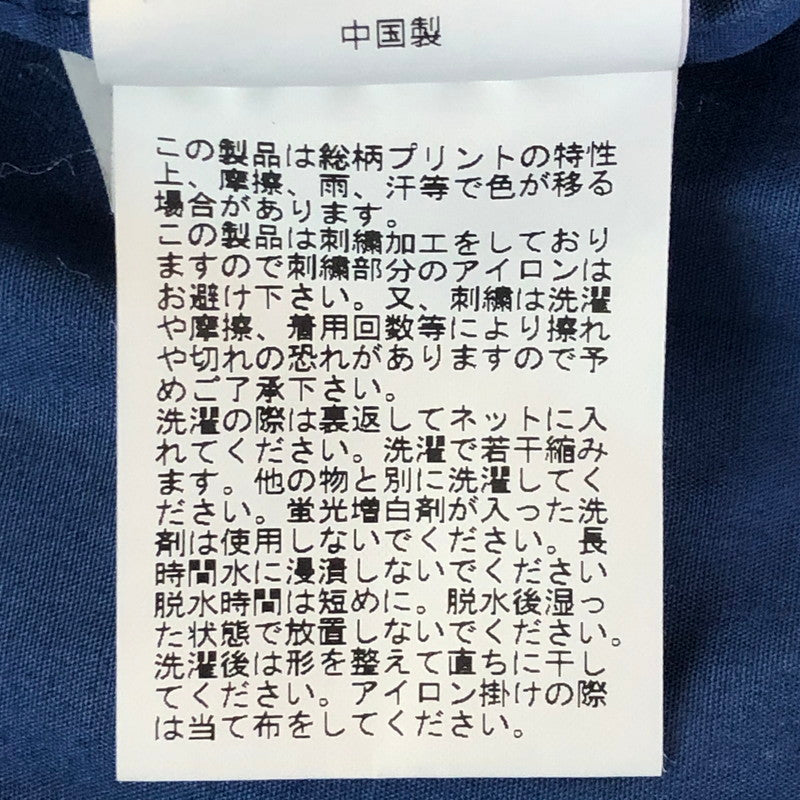 中国製
この製品は総柄プリントの特性
上、摩擦、雨、汗等で色が移る
場合があります。
この製品は刺繍加工をしており
ますので刺繍部分のアイロンは
お避け下さい。又、刺繍は洗濯
や摩擦、着用回数等により擦れ
や切れの恐れがありますので予
めご了承下さい。
洗濯の際は裏返してネットに入
れてください。洗濯で若干縮み
ます。他の物と別に洗濯してく
ださい。蛍光増白剤が入った洗
剤は使用しないでください。長
時間水に浸漬しないでください
脱水時間は短めに。脱水後湿っ
た状態で放置しないでください。
洗濯後は形を整えて直ちに干し
てください。アイロン掛けの際
は当て布をしてください。